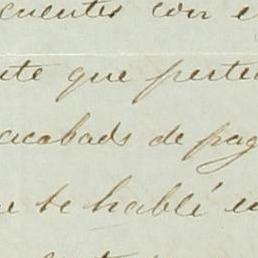 cuentes con e
te que perte
acabads de pag
te hablé e